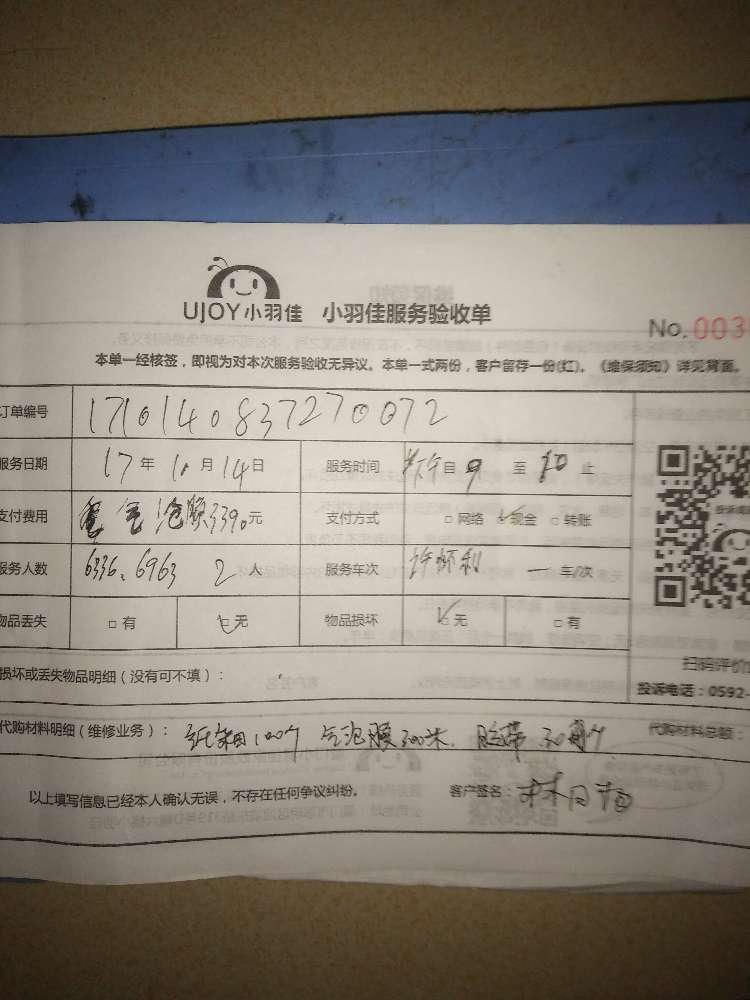 UJOY小羽佳 小羽佳服务验收单
No. 003
本单一经核签，即视为对本次服务验收无异议。本单一式两份，客户留存一份(红)。《维保须知》详见背面。
订单编号 1710140837270072
服务日期 17年10月14日 服务时间 自9至 止
支付费用 气泡膜3390元 支付方式 □网络 ☑现金 □转账
服务人数 6336、6963 2人 服务车次 一车次
物品丢失 □有 ☑无 物品损坏 ☑无 □有
扫码评价
损坏或丢失物品明细（没有可不填）：
投诉电话：0592-
代购材料明细（维修业务）：纸箱100个 气泡膜300米、胶带 代购材料总额：
以上填写信息已经本人确认无误，不存在任何争议纠纷。 客户签名：林